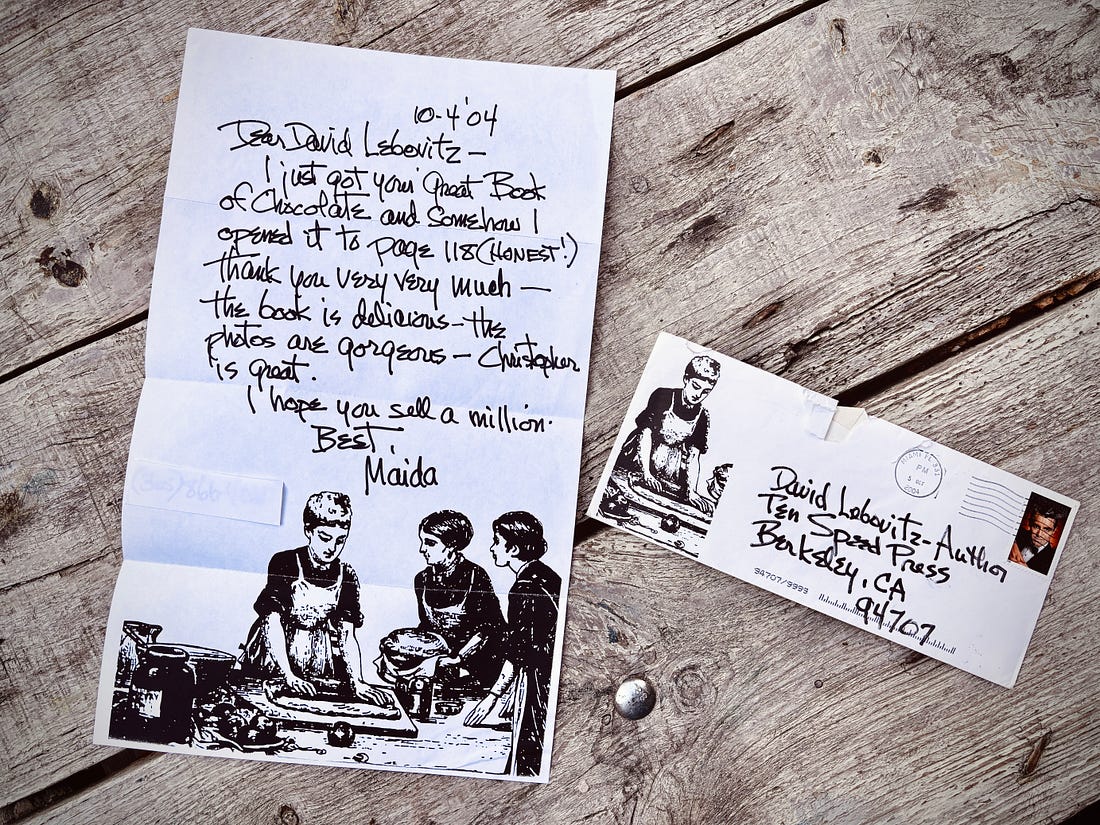 10-4'04
Dear David Lebovitz —
I just got your Great Book
of Chocolate and somehow I
opened it to page 118 (HONEST!)
thank you very very much —
the book is delicious — the
photos are gorgeous — Christopher
is great.
I hope you sell a million.
Best,
Maida
David Lebovitz - Author
Ten Speed Press
Berkeley, CA
94707
MIAMI FL 331
PM
5 OCT
2004
94707/9993